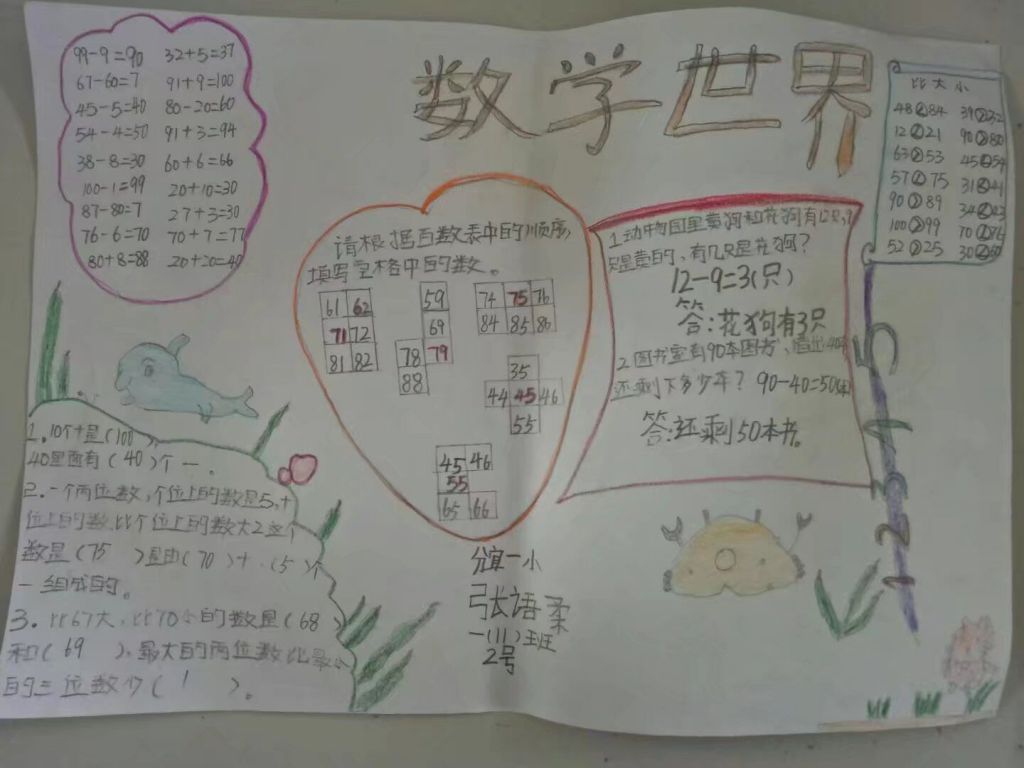 数学世界
99-9=90 32+5=37
67-60=7 91+9=100
45-5=40 80-20=60
54-4=50 91+3=94
38-8=30 60+6=66
100-1=99 20+10=30
87-80=7 27+3=30
76-6=70 70+7=77
80+8=88 20+20=40
请根据百数表中的顺序,
填写空格中的数。
61 62
71 72
81 82
59
69
78 79
88
74 75 76
84 85 86
35
44 45 46
55
45 46
55
65 66
1.动物园里黄狗和花狗有12只,9
只是黄的,有几只是花狗?
12-9=3(只)
答:花狗有3只
2.图书室有90本图书,借出40本
还剩下多少本? 90-40=50(本)
答:还剩50本书。
比大小
48 84 39 32
12 21 90 80
63 53 45 54
57 75 31 41
90 89 34
100 99 70 76
52 25 30
1.10个十是(100)
40里面有(40)个一。
2.一个两位数,个位上的数是5,十
位上的数比个位上的数大2这个
数是(75)是由(70)十、(5)个
一组成的。
3.比67大,比70小的数是(68)
和(69),最大的两位数比最小
的三位数少(1)。
宾一小
张语柔
一(11)班
2号
5
4
3
2
1